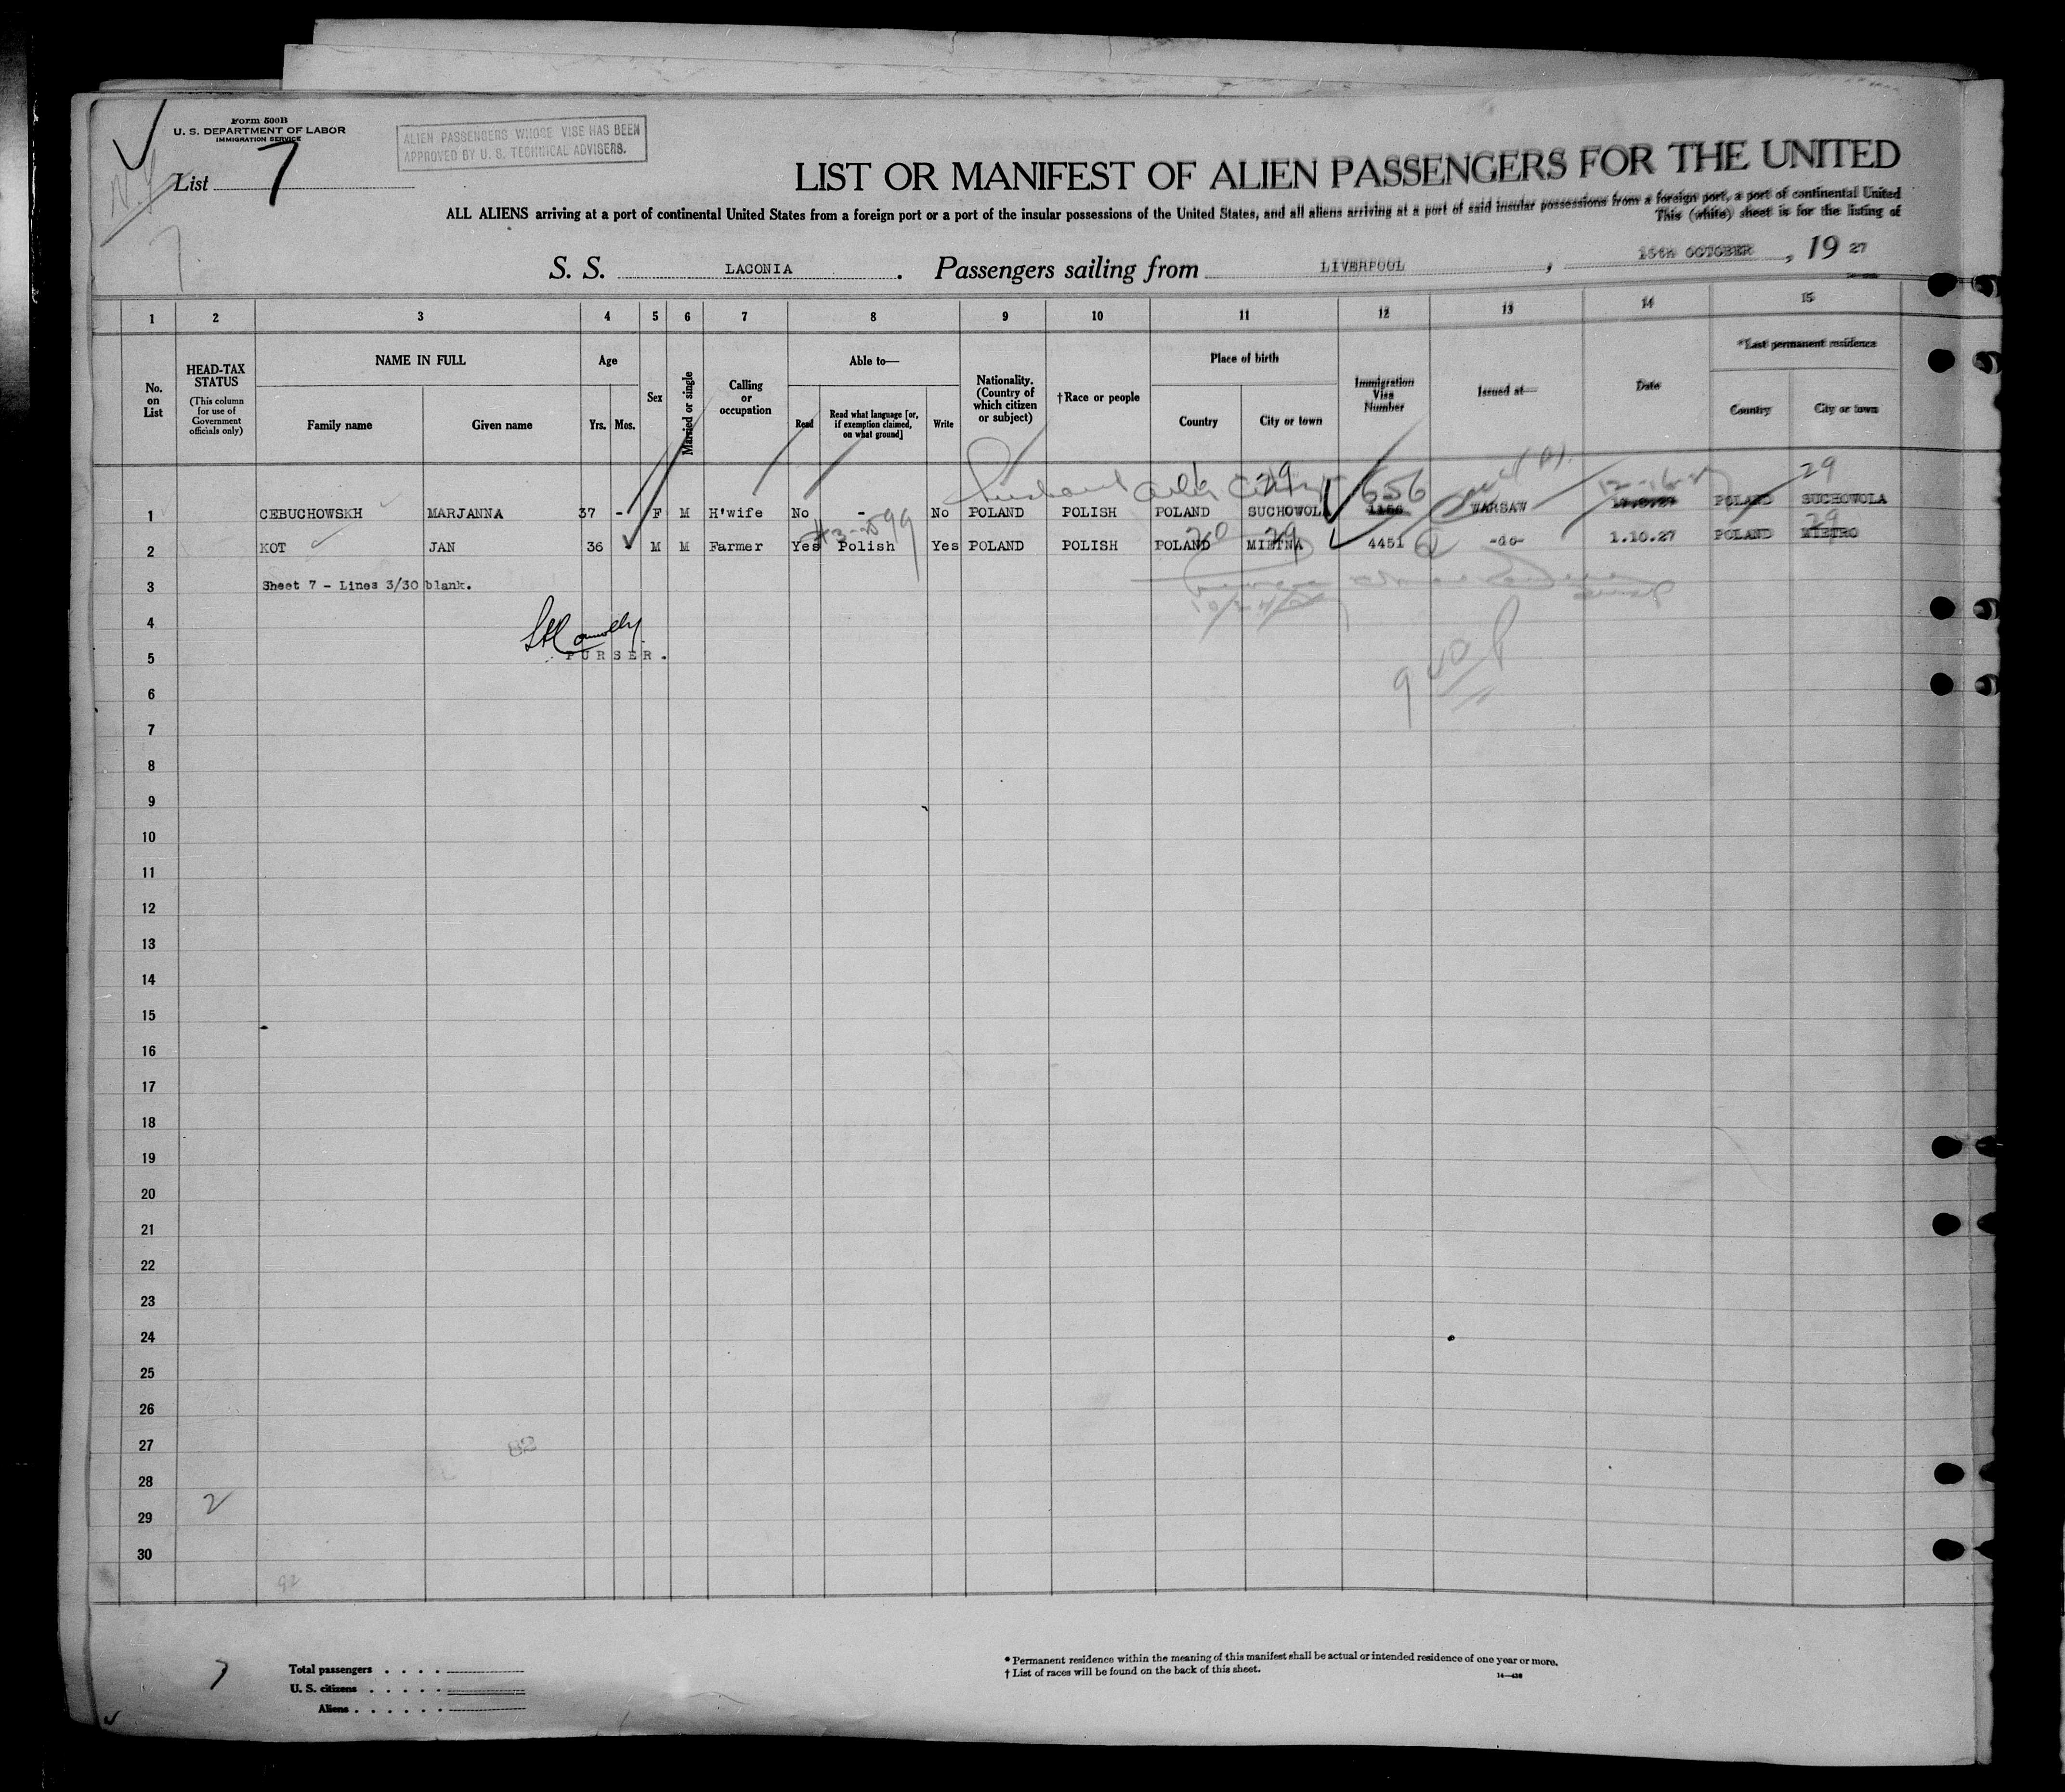 Form 500B
U. S. DEPARTMENT OF LABOR
IMMIGRATION SERVICE
ALIEN PASSENGERS WHOSE VISE HAS BEEN
APPROVED BY U. S. TECHNICAL ADVISERS.
List 7
LIST OR MANIFEST OF ALIEN PASSENGERS FOR THE UNITED
ALL ALIENS arriving at a port of continental United States from a foreign port or a port of the insular possessions of the United States, and all aliens arriving at a port of said insular possessions from a foreign port, a port of continental United
This (white) sheet is for the listing of
S. S. LACONIA. Passengers sailing from LIVERPOOL, 15th OCTOBER, 19 27
1 2 3 4 5 6 7 8 9 10 11 12 13 14 15
No. on List
HEAD-TAX STATUS
(This column for use of Government officials only)
NAME IN FULL
Family name
Given name
Age
Yrs. Mos.
Sex
Married or single
Calling or occupation
Able to—
Read
Read what language [or, if exemption claimed, on what ground]
Write
Nationality. (Country of which citizen or subject)
†Race or people
Place of birth
Country
City or town
Immigration Visa Number
Issued at—
Date
*Last permanent residence
Country
City or town
husband 29 656 12-16-27 29
1 CEBUCHOWSKH MARJANNA 37 - F M H'wife No - No POLAND POLISH POLAND SUCHOWOL 1156 WARSAW POLAND SUCHOWOLA
20 29 29
2 KOT JAN 36 M M Farmer Yes Polish Yes POLAND POLISH POLAND MIETNA 4451 -do- 1.10.27 POLAND MIETRO
3 Sheet 7 - Lines 3/30 blank.
4
5 PURSER.
6
7
8
9
10
11
12
13
14
15
16
17
18
19
20
21
22
23
24
25
26
27 82
28
29 2
30
92
7
Total passengers . . . .
U. S. citizens . . . . .
Aliens . . . . . .
* Permanent residence within the meaning of this manifest shall be actual or intended residence of one year or more.
† List of races will be found on the back of this sheet.
14—428